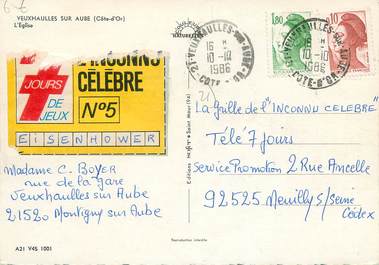 6-€
VEUXHAULLES SUR AUBE (Côte-d'Or)
L'Église
L'INCONNU
CÉLÈBRE
7
JOURS
DE
JEUX
N°5
EISENHOWER
Madame C. BOYER
rue de la Gare
Veuxhaulles sur Aube
21520 Montigny sur Aube
A21 V4S 1001
Reproduction interdite
21-VEUXHAULLES-SUR-AUBE
16 H
10-10
1986
COTE-D'OR
1,80
0,10
16 H
10-10
1986
COTE-D'OR
La Grille de l'"INCONNU CELEBRE"
Télé 7 Jours
Service Promotion 2 Rue Ancelle
92525 Neuilly s/Seine
Cédex